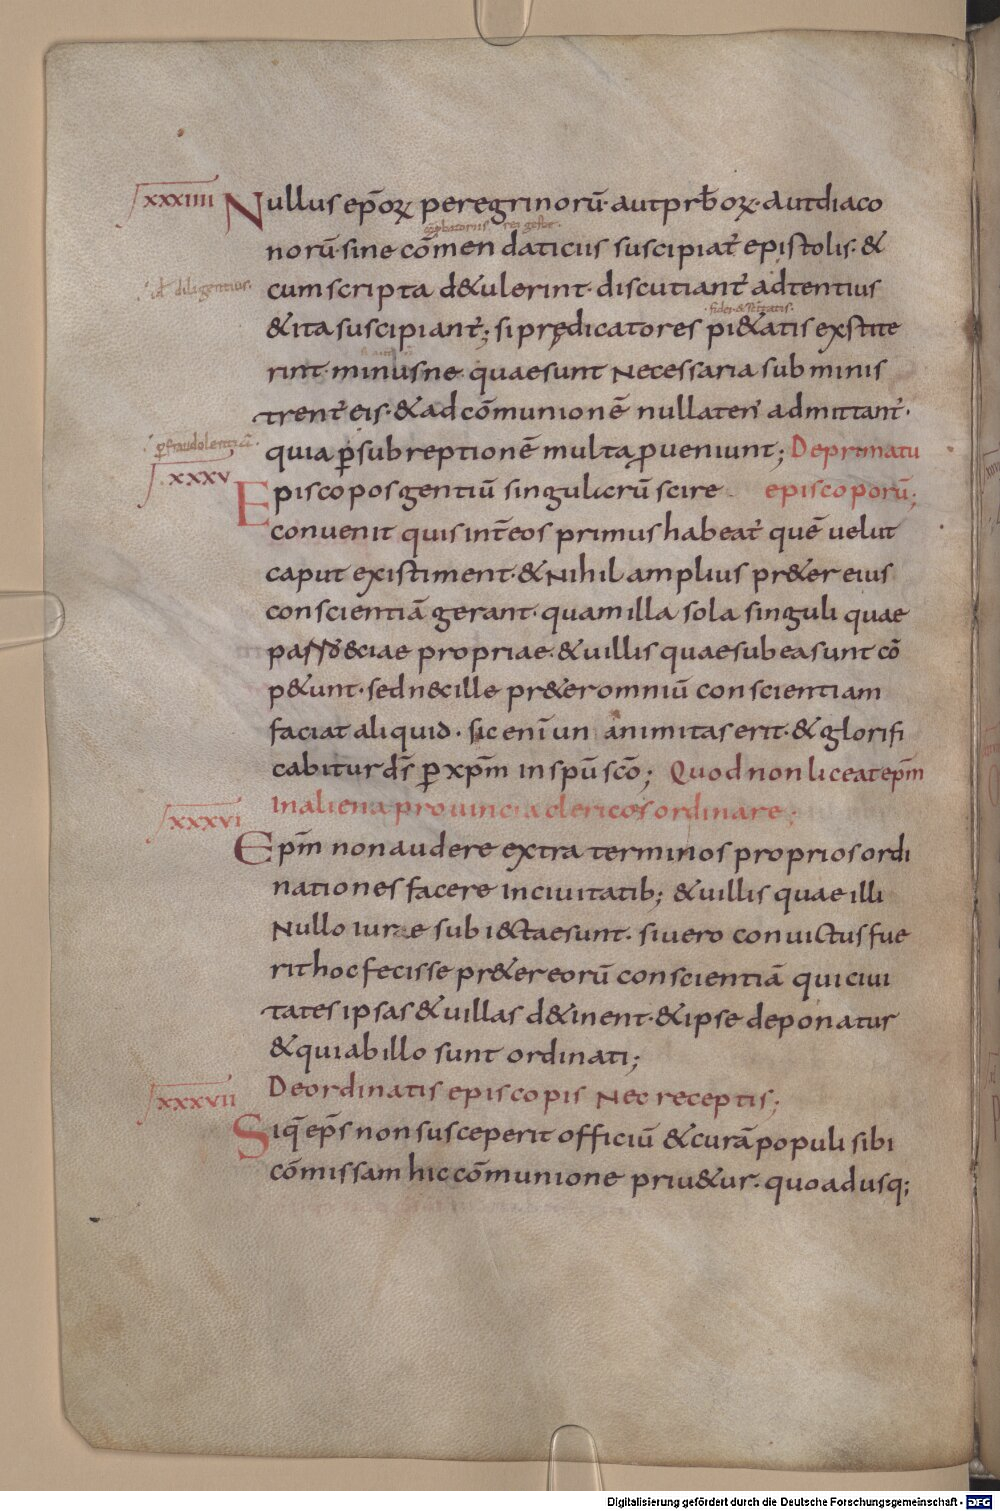 xxxiiii Nullus ep̄oꝝ peregrinorū· aut prb̄oꝝ· aut diaco
norū· sine cōmendaticiis suscipiat᷑ epistolis· &
ut diligentius·
cum scripta d&ulerint· discutiant᷑ adtentius
& ita suscipiant᷑; si prędicatores pi&atis exstite
rint· minusne· quae sunt necessaria subminis
trent᷑ eis· & ad cōmunionē nullaten᷑ admittant᷑·
p̱ fraudolentiā·
quia ꝑ subreptionē multa ꝓueniunt; De primatu
xxxv Episcopos gentiū singularū scire episcoporū;
conuenit quis int̄ eos primus habeat᷑ quē velut
caput existiment· & nihil amplius pr&er eius
conscientiā gerant· quam illa sola singuli quae
parrochiae propriae· & uillis quae sub ea sunt cō
p&unt· sed nec ille pr&er omniū conscientiam
faciat aliquid· sic enī unanimitas erit· & glorifi
cabitur d̄s ꝑ xp̄m in sp̄u scō; Quod non liceat ep̄m
In aliena prouincia clericos ordinare;
xxxvi Ep̄m non audere extra terminos proprios ordi
nationes facere in ciuitatib; & uillis quae illi
nullo iure subiectae sunt· si uero conuictus fue
rit hoc fecisse pr&er eorū conscientiā qui ciui
tates ipsas & uillas d&inent· & ipse deponatur
& qui ab illo sunt ordinati;
De ordinatis episcopis nec receptis;
xxxvii Siq̄ ep̄s non susceperit officiū & curā populi sibi
cōmissam hic cōmunione priu&ur· quoadusq;
Digitalisierung gefördert durch die Deutsche Forschungsgemeinschaft - DFG